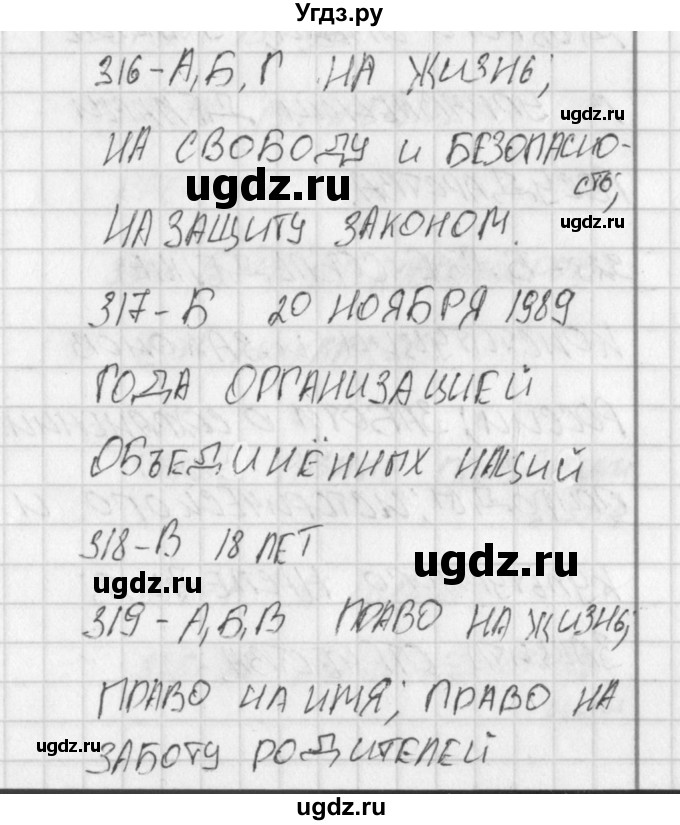 Угдз.ру
316-А,Б,Г НА ЖИЗНЬ;
ugdz.ru
НА СВОБОДУ И БЕЗОПАСНО-
СТЬ;
ugdz.ru
ugdz.ru
НА ЗАЩИТУ ЗАКОНОМ.
317-Б 20 НОЯБРЯ 1989
ГОДА ОРГАНИЗАЦИЕЙ
ОБЪЕДИНЁННЫХ НАЦИЙ
318-В 18 ЛЕТ
ugdz.ru
ugdz.ru
319-А,Б,В ПРАВО НА ЖИЗНЬ;
ПРАВО НА ИМЯ; ПРАВО НА
ugdz.ru
ЗАБОТУ РОДИТЕЛЕЙ
ugdz.ru